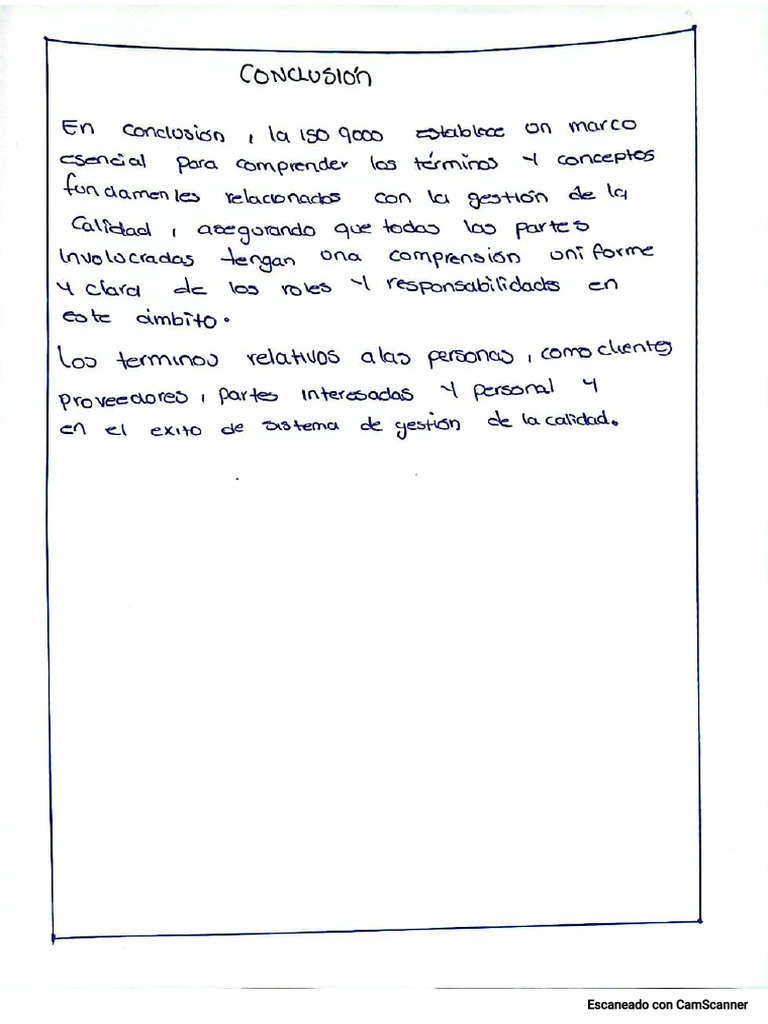 CONCLUSIÓN
En conclusion, la ISO 9000 establece un marco
esencial para comprender los términos y conceptos
fundamenles relacionados con la gestión de la
Calidad, asegurando que todas las partes
Involocradas tengan una comprensión uniforme
y clara de los roles y responsabilidades en
este ámbito.
Los terminos relativos a las personas, como clientes
proveedores, partes interesadas y personal y
en el exito de sistema de gestión de la calidad.
Escaneado con CamScanner